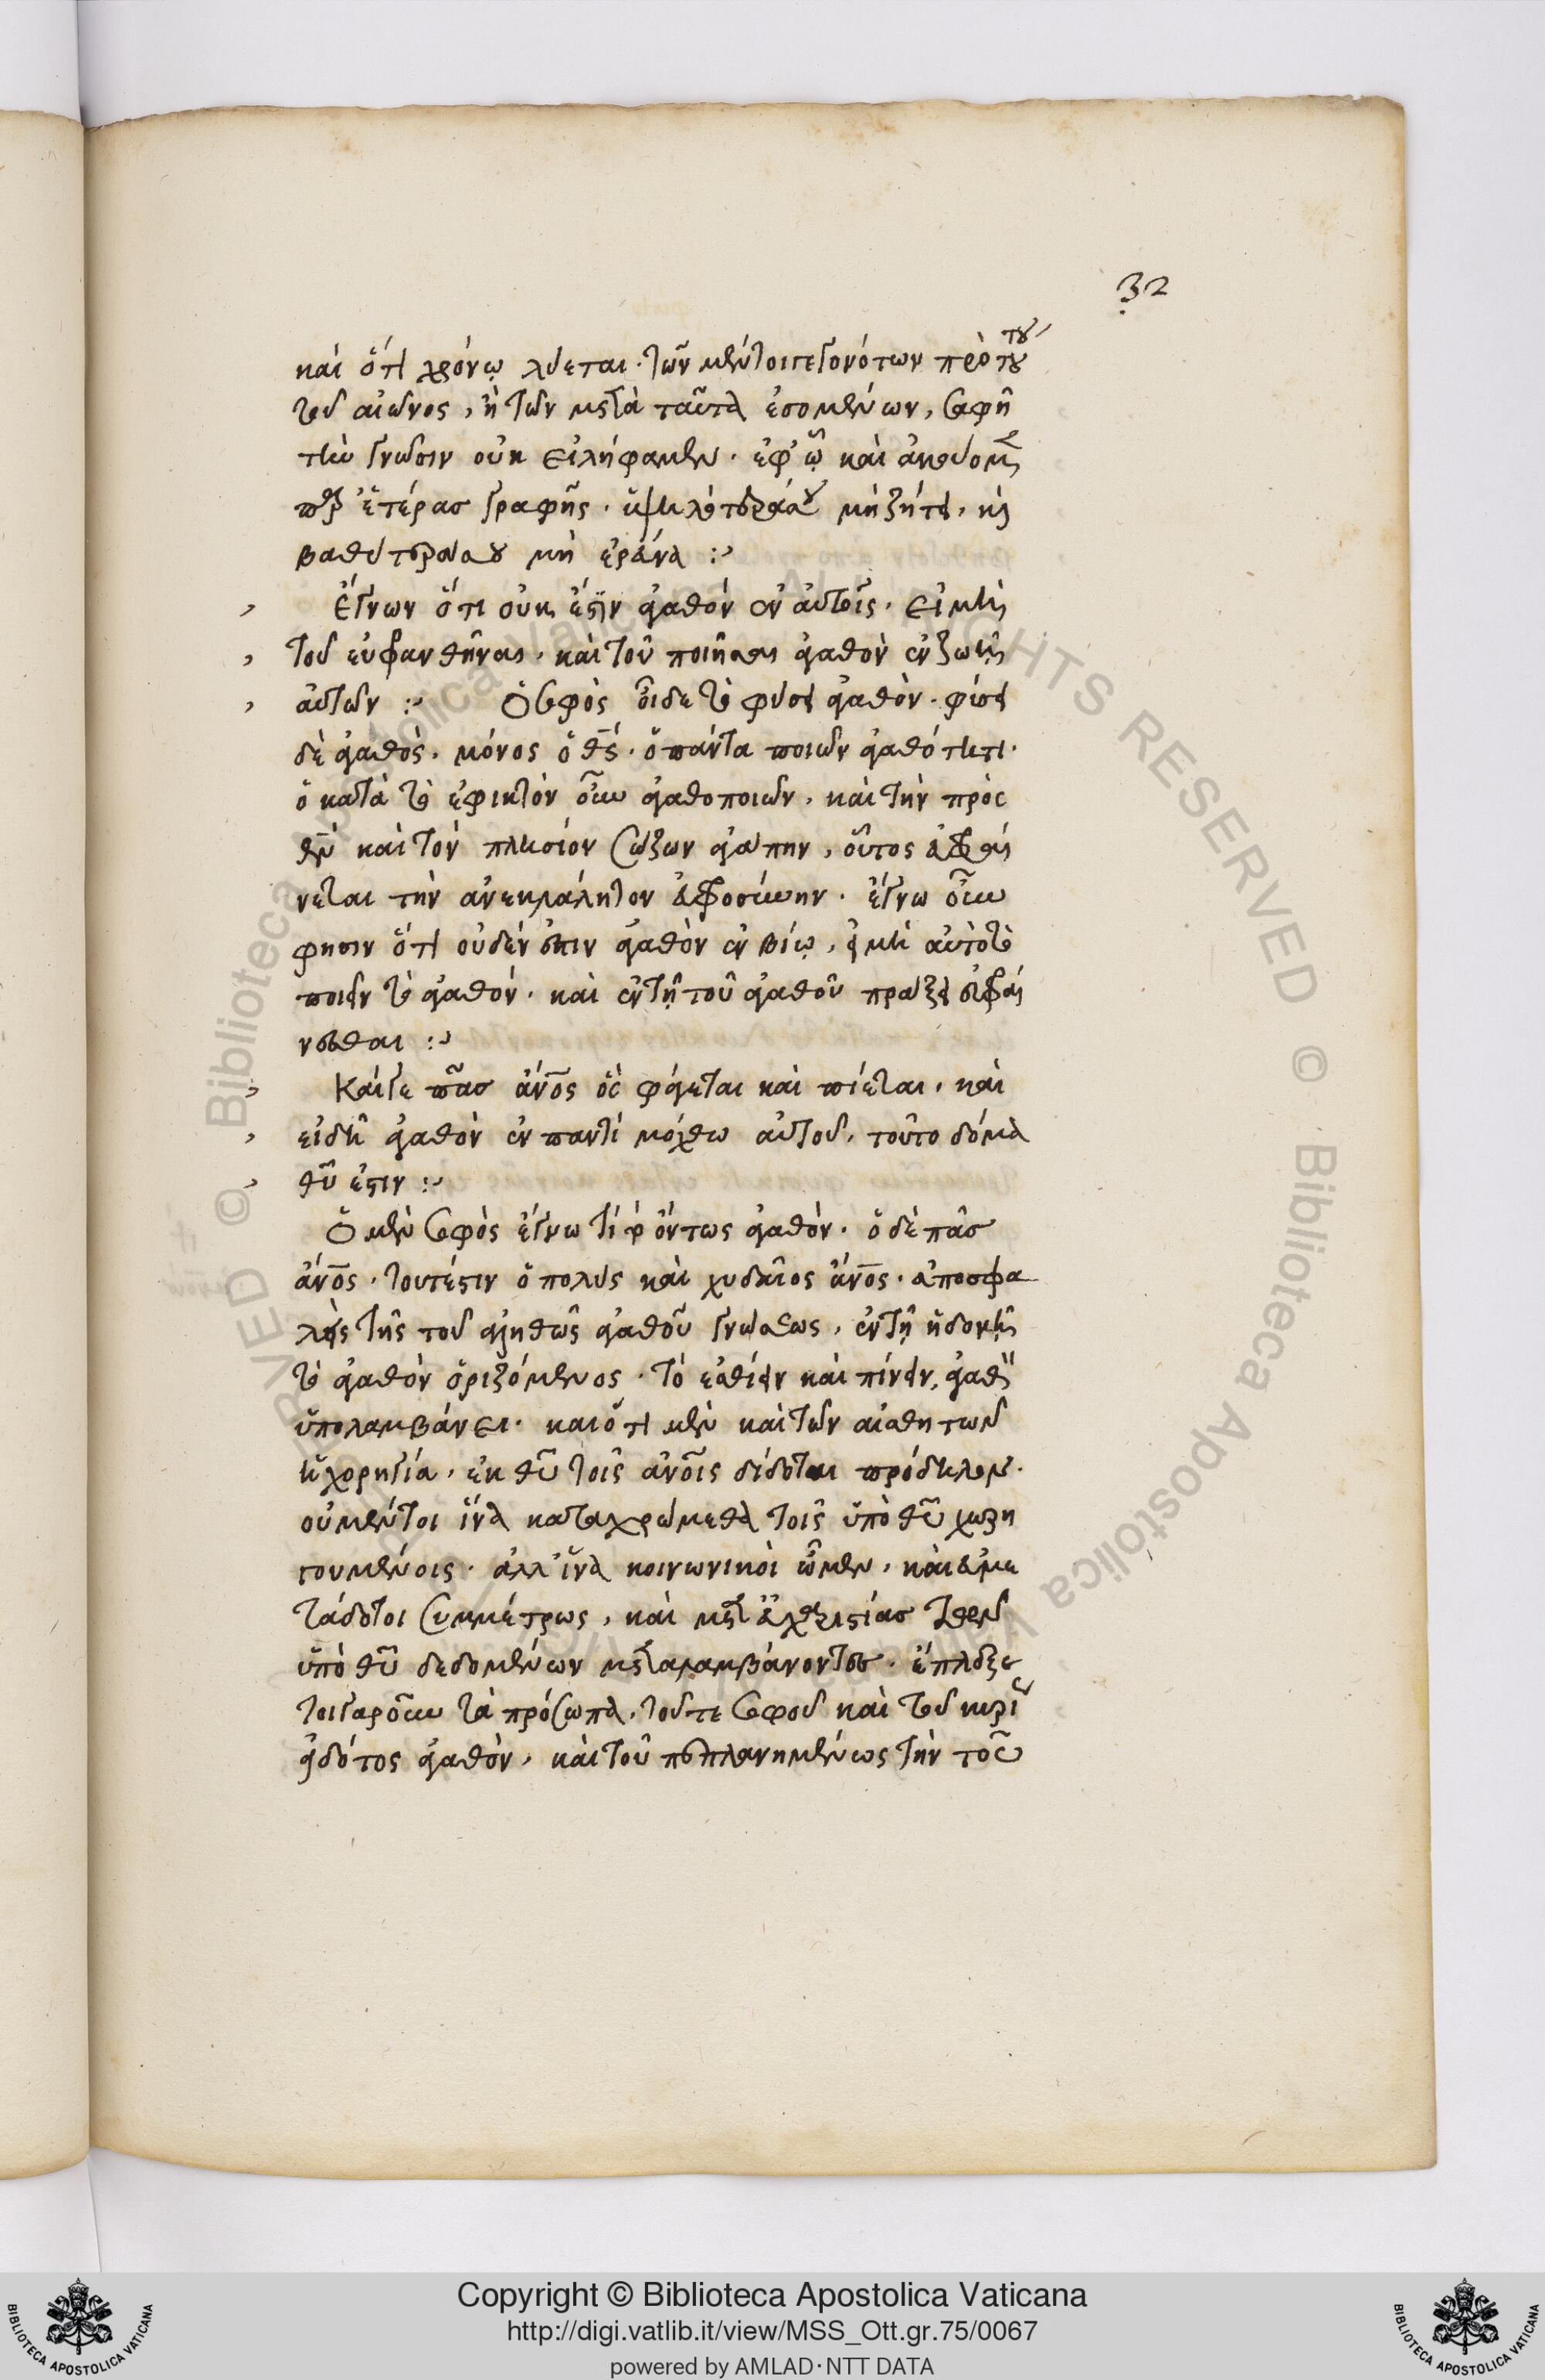 32
καὶ ὅτι χρόνῳ λύεται· τῶν μέντοι γεγονότων πρὸ του
του
τοῦ αἰῶνος, ἢ τῶν μετὰ ταῦτα ἐσομένων, σαφῆ
τὴν γνῶσιν οὐκ εἰλήφαμεν· ἐφ' ᾧ καὶ ἀκούομεν
παρ' ἑτέρας γραφῆς· ὑψηλότερά σου μὴ ζήτει, καὶ
βαθύτερά σου μὴ ἐρεύνα :~
Ἔγνων ὅτι οὐκ ἔστιν ἀγαθὸν ἐν αὐτοῖς· εἰ μὴ
τοῦ εὐφρανθῆναι, καὶ τοῦ ποιῆσαι ἀγαθὸν ἐν ζωῇ
αὐτῶν :~ Ὁ σοφὸς οἶδε τὸ φύσει ἀγαθόν· φύσει
δὲ ἀγαθὸς, μόνος ὁ θς· ὁ πάντα ποιῶν ἀγαθότητι·
ὁ κατὰ τὸ ἐφικτὸν οὖν ἀγαθοποιῶν, καὶ τὴν πρὸς
θν καὶ τὸν πλησίον σώζων ἀγάπην, οὗτος εὐφραί
νεται τὴν ἀνεκλάλητον εὐφροσύνην· ἔγνω οὖν
φησιν ὅτι οὐδέν ἐστιν ἀγαθὸν ἐν βίῳ, εἰ μὴ αὐτὸ τὸ
ποιεῖν τὸ ἀγαθόν· καὶ ἐν τῇ τοῦ ἀγαθοῦ πράξει εὐφραί
νεσθαι :~
Καί γε πᾶς ἄνος ὃς φάγεται καὶ πίεται, καὶ
εἴδῃ ἀγαθὸν ἐν παντὶ μόχθω αὐτοῦ, τοῦτο δόμα
θυ ἐστιν :~
Ὁ μὲν σοφὸς ἔγνω τί τὸ ὄντως ἀγαθόν· ὁ δὲ πᾶς
ἄνος· τουτέστιν ὁ πολὺς καὶ χυδαῖος ἄνος· ἀποσφα
λεὶς τῆς τοῦ ἀληθῶς ἀγαθοῦ γνώσεως, ἐν τῇ ἡδονῇ
τὸ ἀγαθὸν ὁριζόμενος· τὸ ἐσθίειν καὶ πίνειν, ἀγαθὸν
ὑπολαμβάνει· καὶ ὅτι μὲν καὶ τῶν αἰσθητῶν
ἡ χορηγία, ἐκ θυ τοῖς ἀνοις δίδοται πρόδηλον·
οὐ μέντοι ἵνα καταχρώμεθα τοῖς ὑπὸ θυ χωρη
γουμένοις· ἀλλ' ἵνα κοινωνικοὶ ὦμεν, καὶ εὐμε
τάδοτοι συμμέτρως, καὶ μετ' εὐχαριστίας τῶν
ὑπὸ θυ δεδομένων μεταλαμβάνοντες· ἔπλεξε
τοιγαροῦν τὰ πρόσωπα, τοῦ τε σοφοῦ καὶ τοῦ κυρίως
εἰδότος ἀγαθόν, καὶ τοῦ πεπλανημένως τὴν τοῦ